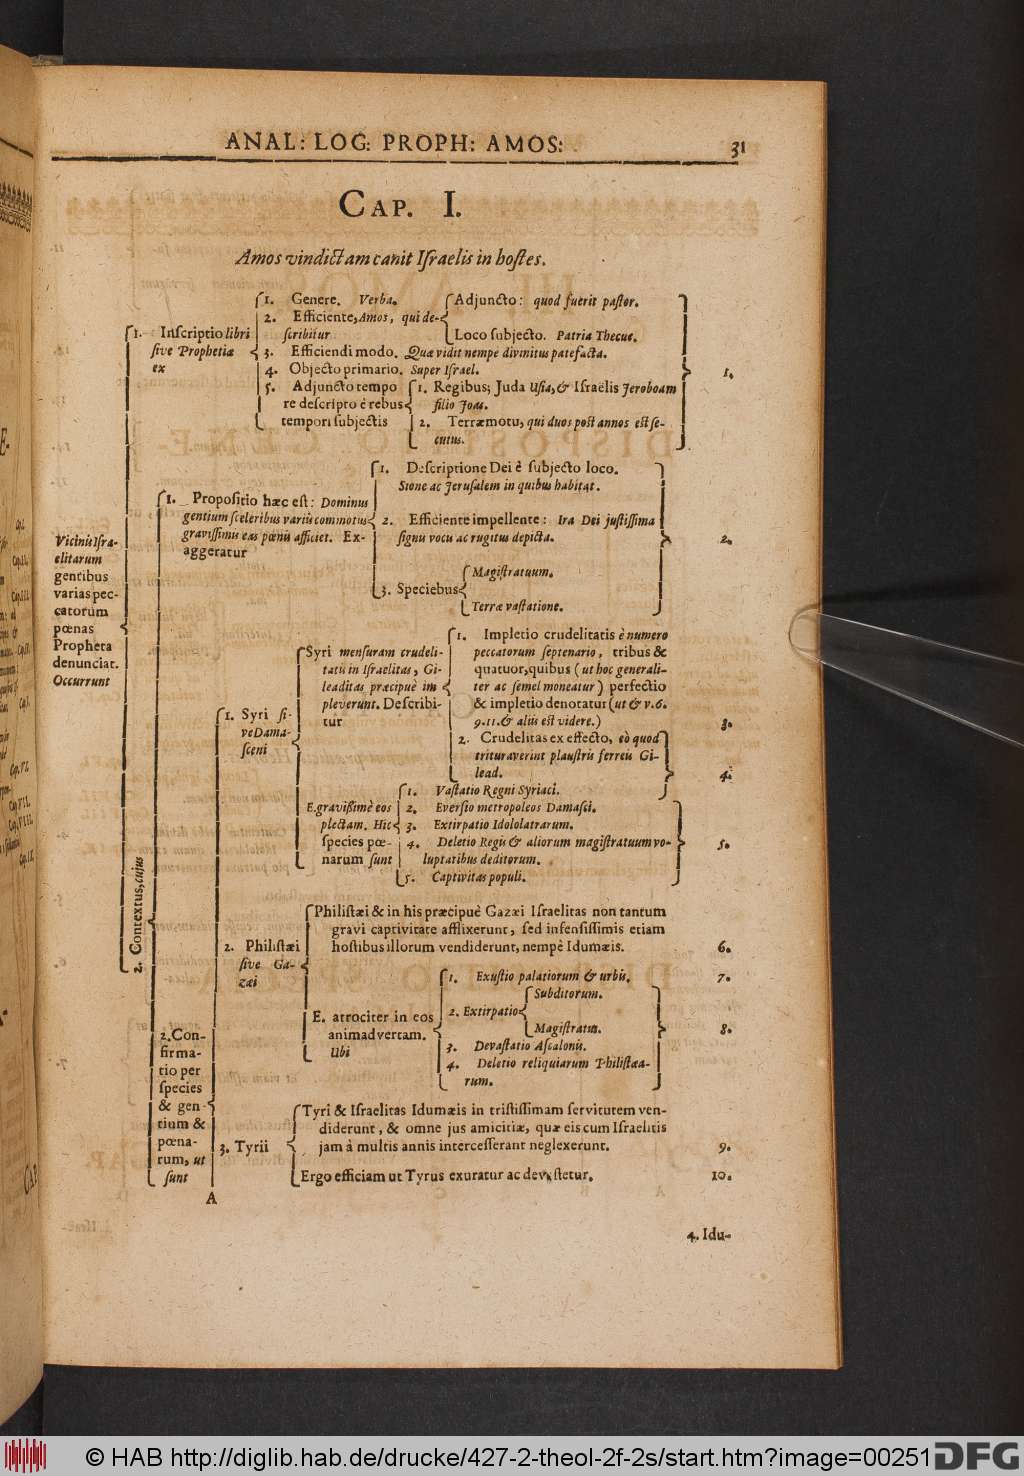 ANAL: LOG: PROPH: AMOS:
31
CAP. I.
Amos vindictam canit Iſraelis in hoſtes.
Vicinis Iſra-
elitarum
gentibus
varias pec-
catorum
pœnas
Propheta
denunciat.
Occurrunt
1. Inſcriptio libri
ſive Prophetiæ
ex
1. Genere. Verba.
2. Efficiente, Amos, qui de-
ſcribitur
Adjuncto: quod fuerit paſtor.
Loco ſubjecto. Patria Thecue.
3. Efficiendi modo. Quæ vidit nempe divinitus patefacta.
4. Objecto primario. Super Iſrael.
5. Adjuncto tempo
re deſcripto è rebus
tempori ſubjectis
1. Regibus; Juda Uſia, & Iſraëlis Jeroboam
filio Joas.
2. Terræmotu, qui duos poſt annos eſt ſe-
cutus.
1.
2. Contextus, cujus
1. Propoſitio hæc eſt: Dominus
gentium ſceleribus variis commotus
graviſſimis eas pœnis afficiet. Ex-
aggeratur
1. Deſcriptione Dei è ſubjecto loco.
Sione ac Jeruſalem in quibus habitat.
2. Efficiente impellente: Ira Dei juſtiſſima
ſignis vocis ac rugitus depicta.
3. Speciebus
Magiſtratuum.
Terræ vaſtatione.
2.
2. Con-
firma-
tio per
ſpecies
& gen-
tium &
pœna-
rum, ut
ſunt
1. Syri ſi-
ve Dama-
ſceni
Syri menſuram crudeli-
tatis in Iſraelitas, Gi-
leaditas præcipuè im
pleverunt. Deſcribi-
tur
1. Impletio crudelitatis è numero
peccatorum ſeptenario, tribus &
quatuor, quibus (ut hoc generali-
ter ac ſemel moneatur) perfectio
& impletio denotatur (ut & v. 6.
9. 11. & aliis eſt videre.)
3.
2. Crudelitas ex effecto, eò quod
trituraverint plauſtris ferreis Gi-
lead.
4.
E. graviſſimè eos
plectam. Hic
ſpecies pœ-
narum ſunt
1. Vaſtatio Regni Syriaci.
2. Everſio metropoleos Damaſci.
3. Extirpatio Idololatrarum.
4. Deletio Regis & aliorum magiſtratuum vo-
luptatibus deditorum.
5. Captivitas populi.
5.
2. Philiſtæi
ſive Ga-
zæi
Philiſtæi & in his præcipuè Gazæi Iſraelitas non tantum
gravi captivitate afflixerunt, ſed infenſiſſimis etiam
hoſtibus illorum vendiderunt, nempè Idumæis.
6.
E. atrociter in eos
animadvertam.
Ubi
1. Exuſtio palatiorum & urbis.
7.
2. Extirpatio
Subditorum.
Magiſtratus.
8.
3. Devaſtatio Aſcalonis.
4. Deletio reliquiarum Philiſtæa-
rum.
3. Tyrii
Tyri & Iſraelitas Idumæis in triſtiſſimam ſervitutem ven-
diderunt, & omne jus amicitiæ, quæ eis cum Iſraelitis
jam à multis annis interceſſerant neglexerunt.
9.
Ergo efficiam ut Tyrus exuratur ac devaſtetur.
10.
A
4. Idu-
© HAB http://diglib.hab.de/drucke/427-2-theol-2f-2s/start.htm?image=00251
DFG